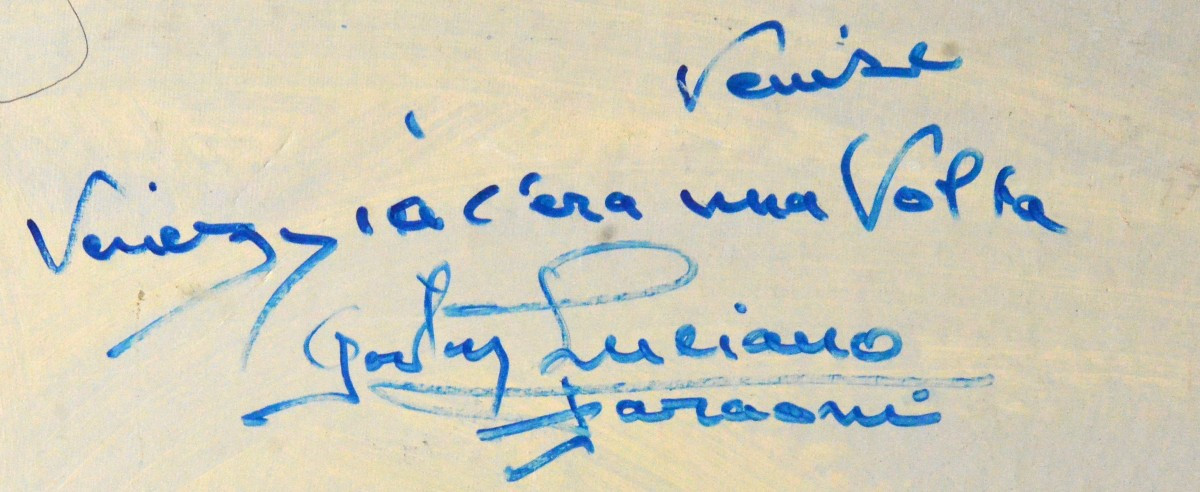 Venise
Venezzia c'era una Volta
Luciano
Faraoni